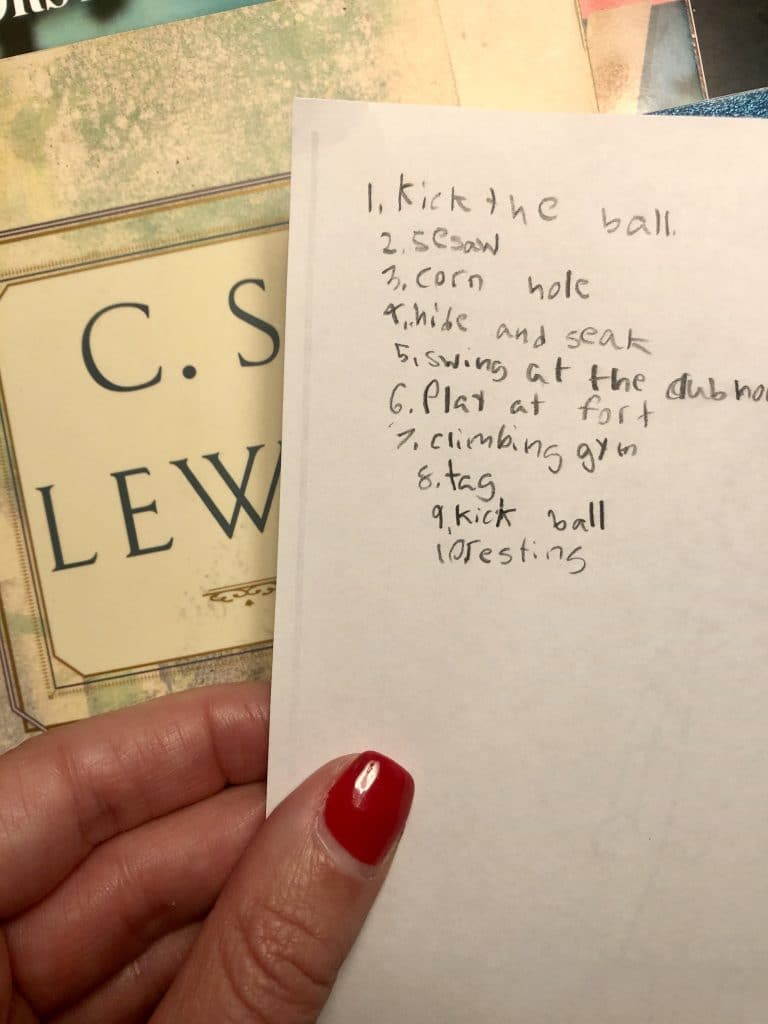 C.S
LEW
1. Kick the ball.
2. sesaw
3. corn hole
4. hide and seak
5. swing at the clubhou
6. Play at fort
7. climbing gym
8. tag
9. kick ball
10 resting